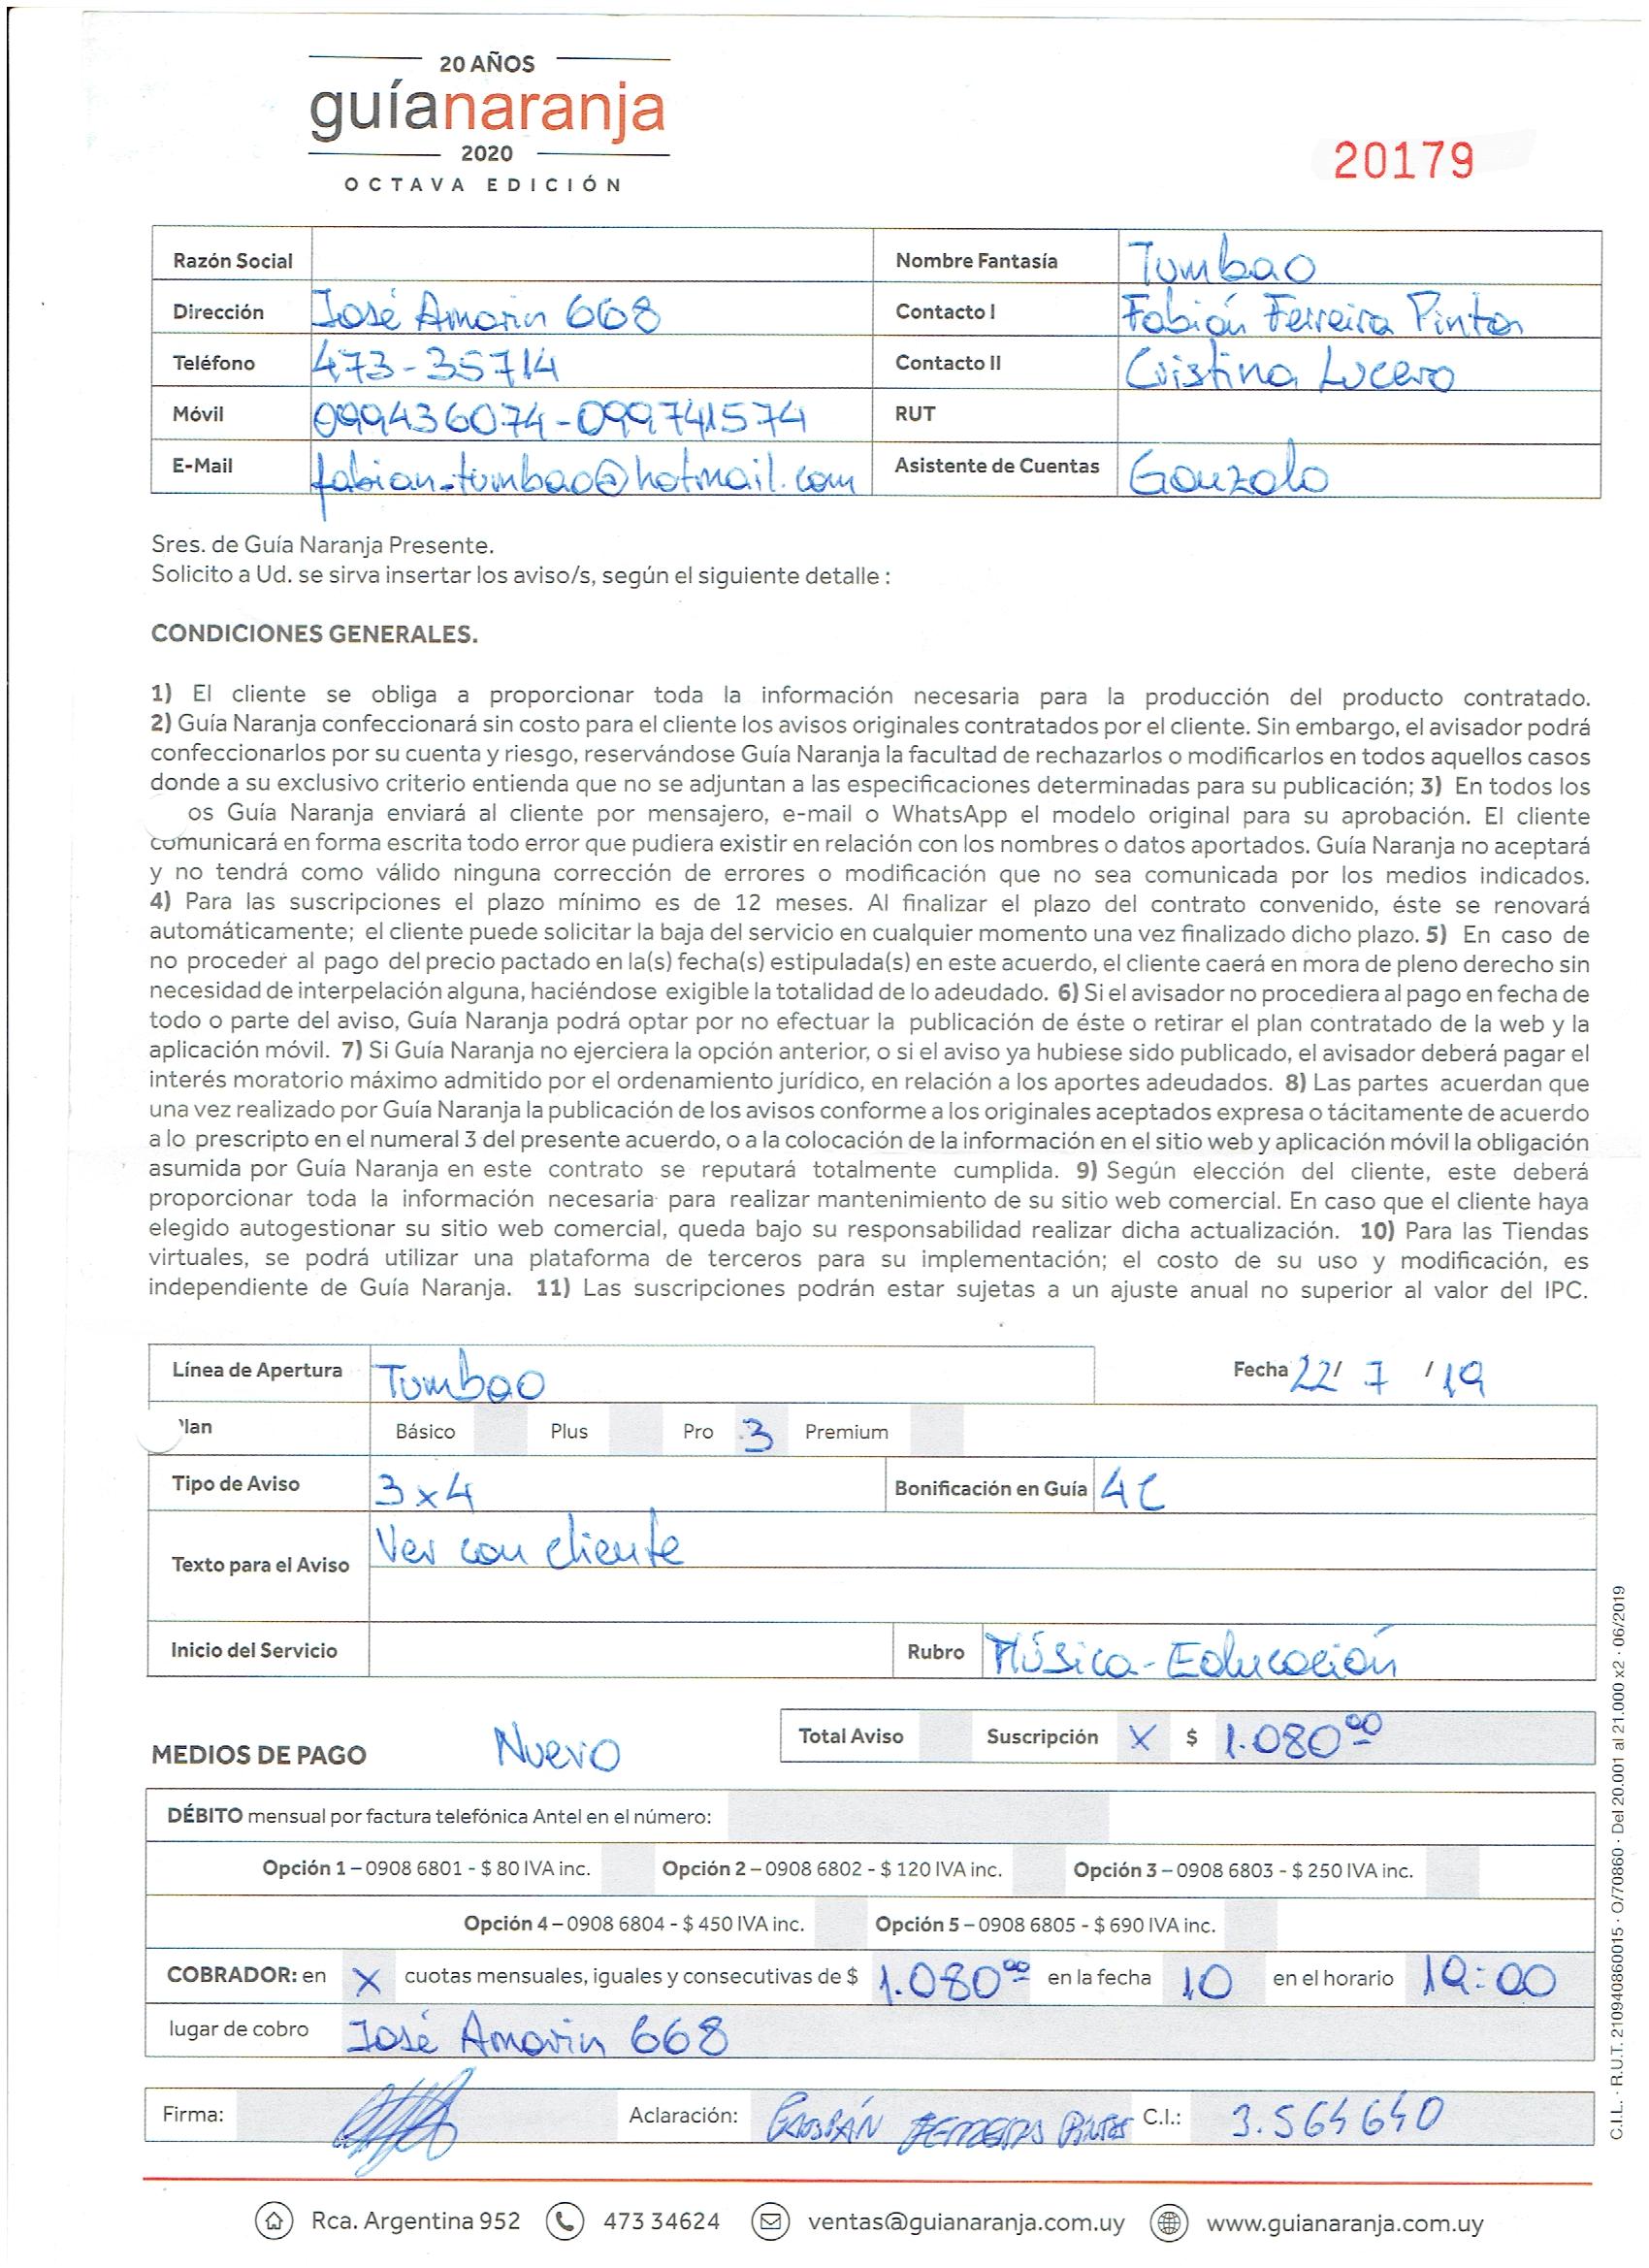 20 AÑOS
guíanaranja
2020
OCTAVA EDICIÓN
20179
Razón Social
Nombre Fantasía Tumbao
Dirección José Amorin 668
Contacto I Fabián Ferreira Pintos
Teléfono 473-35714
Contacto II Cristina Lucero
Móvil 099436074-099741574
RUT
E-Mail fabian-tumbao@hotmail.com
Asistente de Cuentas Gonzalo
Sres. de Guía Naranja Presente.
Solicito a Ud. se sirva insertar los aviso/s, según el siguiente detalle :
CONDICIONES GENERALES.
1) El cliente se obliga a proporcionar toda la información necesaria para la producción del producto contratado.
2) Guía Naranja confeccionará sin costo para el cliente los avisos originales contratados por el cliente. Sin embargo, el avisador podrá
confeccionarlos por su cuenta y riesgo, reservándose Guía Naranja la facultad de rechazarlos o modificarlos en todos aquellos casos
donde a su exclusivo criterio entienda que no se adjuntan a las especificaciones determinadas para su publicación; 3) En todos los
os Guía Naranja enviará al cliente por mensajero, e-mail o WhatsApp el modelo original para su aprobación. El cliente
comunicará en forma escrita todo error que pudiera existir en relación con los nombres o datos aportados. Guía Naranja no aceptará
y no tendrá como válido ninguna corrección de errores o modificación que no sea comunicada por los medios indicados.
4) Para las suscripciones el plazo mínimo es de 12 meses. Al finalizar el plazo del contrato convenido, éste se renovará
automáticamente; el cliente puede solicitar la baja del servicio en cualquier momento una vez finalizado dicho plazo. 5) En caso de
no proceder al pago del precio pactado en la(s) fecha(s) estipulada(s) en este acuerdo, el cliente caerá en mora de pleno derecho sin
necesidad de interpelación alguna, haciéndose exigible la totalidad de lo adeudado. 6) Si el avisador no procediera al pago en fecha de
todo o parte del aviso, Guía Naranja podrá optar por no efectuar la publicación de éste o retirar el plan contratado de la web y la
aplicación móvil. 7) Si Guía Naranja no ejerciera la opción anterior, o si el aviso ya hubiese sido publicado, el avisador deberá pagar el
interés moratorio máximo admitido por el ordenamiento jurídico, en relación a los aportes adeudados. 8) Las partes acuerdan que
una vez realizado por Guía Naranja la publicación de los avisos conforme a los originales aceptados expresa o tácitamente de acuerdo
a lo prescripto en el numeral 3 del presente acuerdo, o a la colocación de la información en el sitio web y aplicación móvil la obligación
asumida por Guía Naranja en este contrato se reputará totalmente cumplida. 9) Según elección del cliente, este deberá
proporcionar toda la información necesaria para realizar mantenimiento de su sitio web comercial. En caso que el cliente haya
elegido autogestionar su sitio web comercial, queda bajo su responsabilidad realizar dicha actualización. 10) Para las Tiendas
virtuales, se podrá utilizar una plataforma de terceros para su implementación; el costo de su uso y modificación, es
independiente de Guía Naranja. 11) Las suscripciones podrán estar sujetas a un ajuste anual no superior al valor del IPC.
Línea de Apertura Tumbao
Fecha 22/ 7 /19
lan Básico Plus Pro 3 Premium
Tipo de Aviso 3x4
Bonificación en Guía 4C
Texto para el Aviso Ver con cliente
Inicio del Servicio
Rubro Música-Educación
MEDIOS DE PAGO Nuevo
Total Aviso Suscripción X $ 1.080 00
DÉBITO mensual por factura telefónica Antel en el número:
Opción 1 – 0908 6801 - $ 80 IVA inc. Opción 2 – 0908 6802 - $ 120 IVA inc. Opción 3 – 0908 6803 - $ 250 IVA inc.
Opción 4 – 0908 6804 - $ 450 IVA inc. Opción 5 – 0908 6805 - $ 690 IVA inc.
COBRADOR: en X cuotas mensuales, iguales y consecutivas de $ 1.080 00 en la fecha 10 en el horario 19:00
lugar de cobro José Amorin 668
Firma: Aclaración: FABIÁN FERREIRA PINTOS C.I.: 3.564640
Rca. Argentina 952 473 34624 ventas@guianaranja.com.uy www.guianaranja.com.uy
C.I.L. · R.U.T. 210940860015 · O/70860 · Del 20.001 al 21.000 x2 · 06/2019